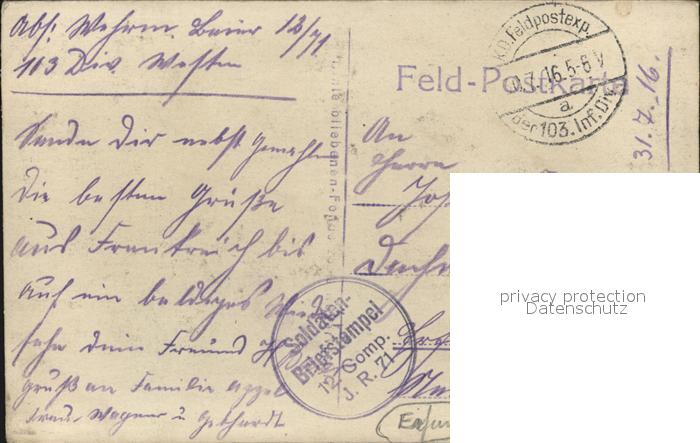 Abs: Wehrm. Baier 12/71
103 Div. Westen
Sende Dir nebst Gemahlin
die besten Grüße
aus Frankreich bis
auf ein baldiges Wieder
sehn dein Freund
Gruß an Familie Appel
Wagner u Gebhardt
Feld-Postkarte
K.D. Feldpostexp.
.7.16. 5-6 V
a.
der 103. Inf. Div.
31.7.16.
An
Herrn
Soldaten-
Briefstempel
12. Comp.
J. R. 71
privacy protection
Datenschutz